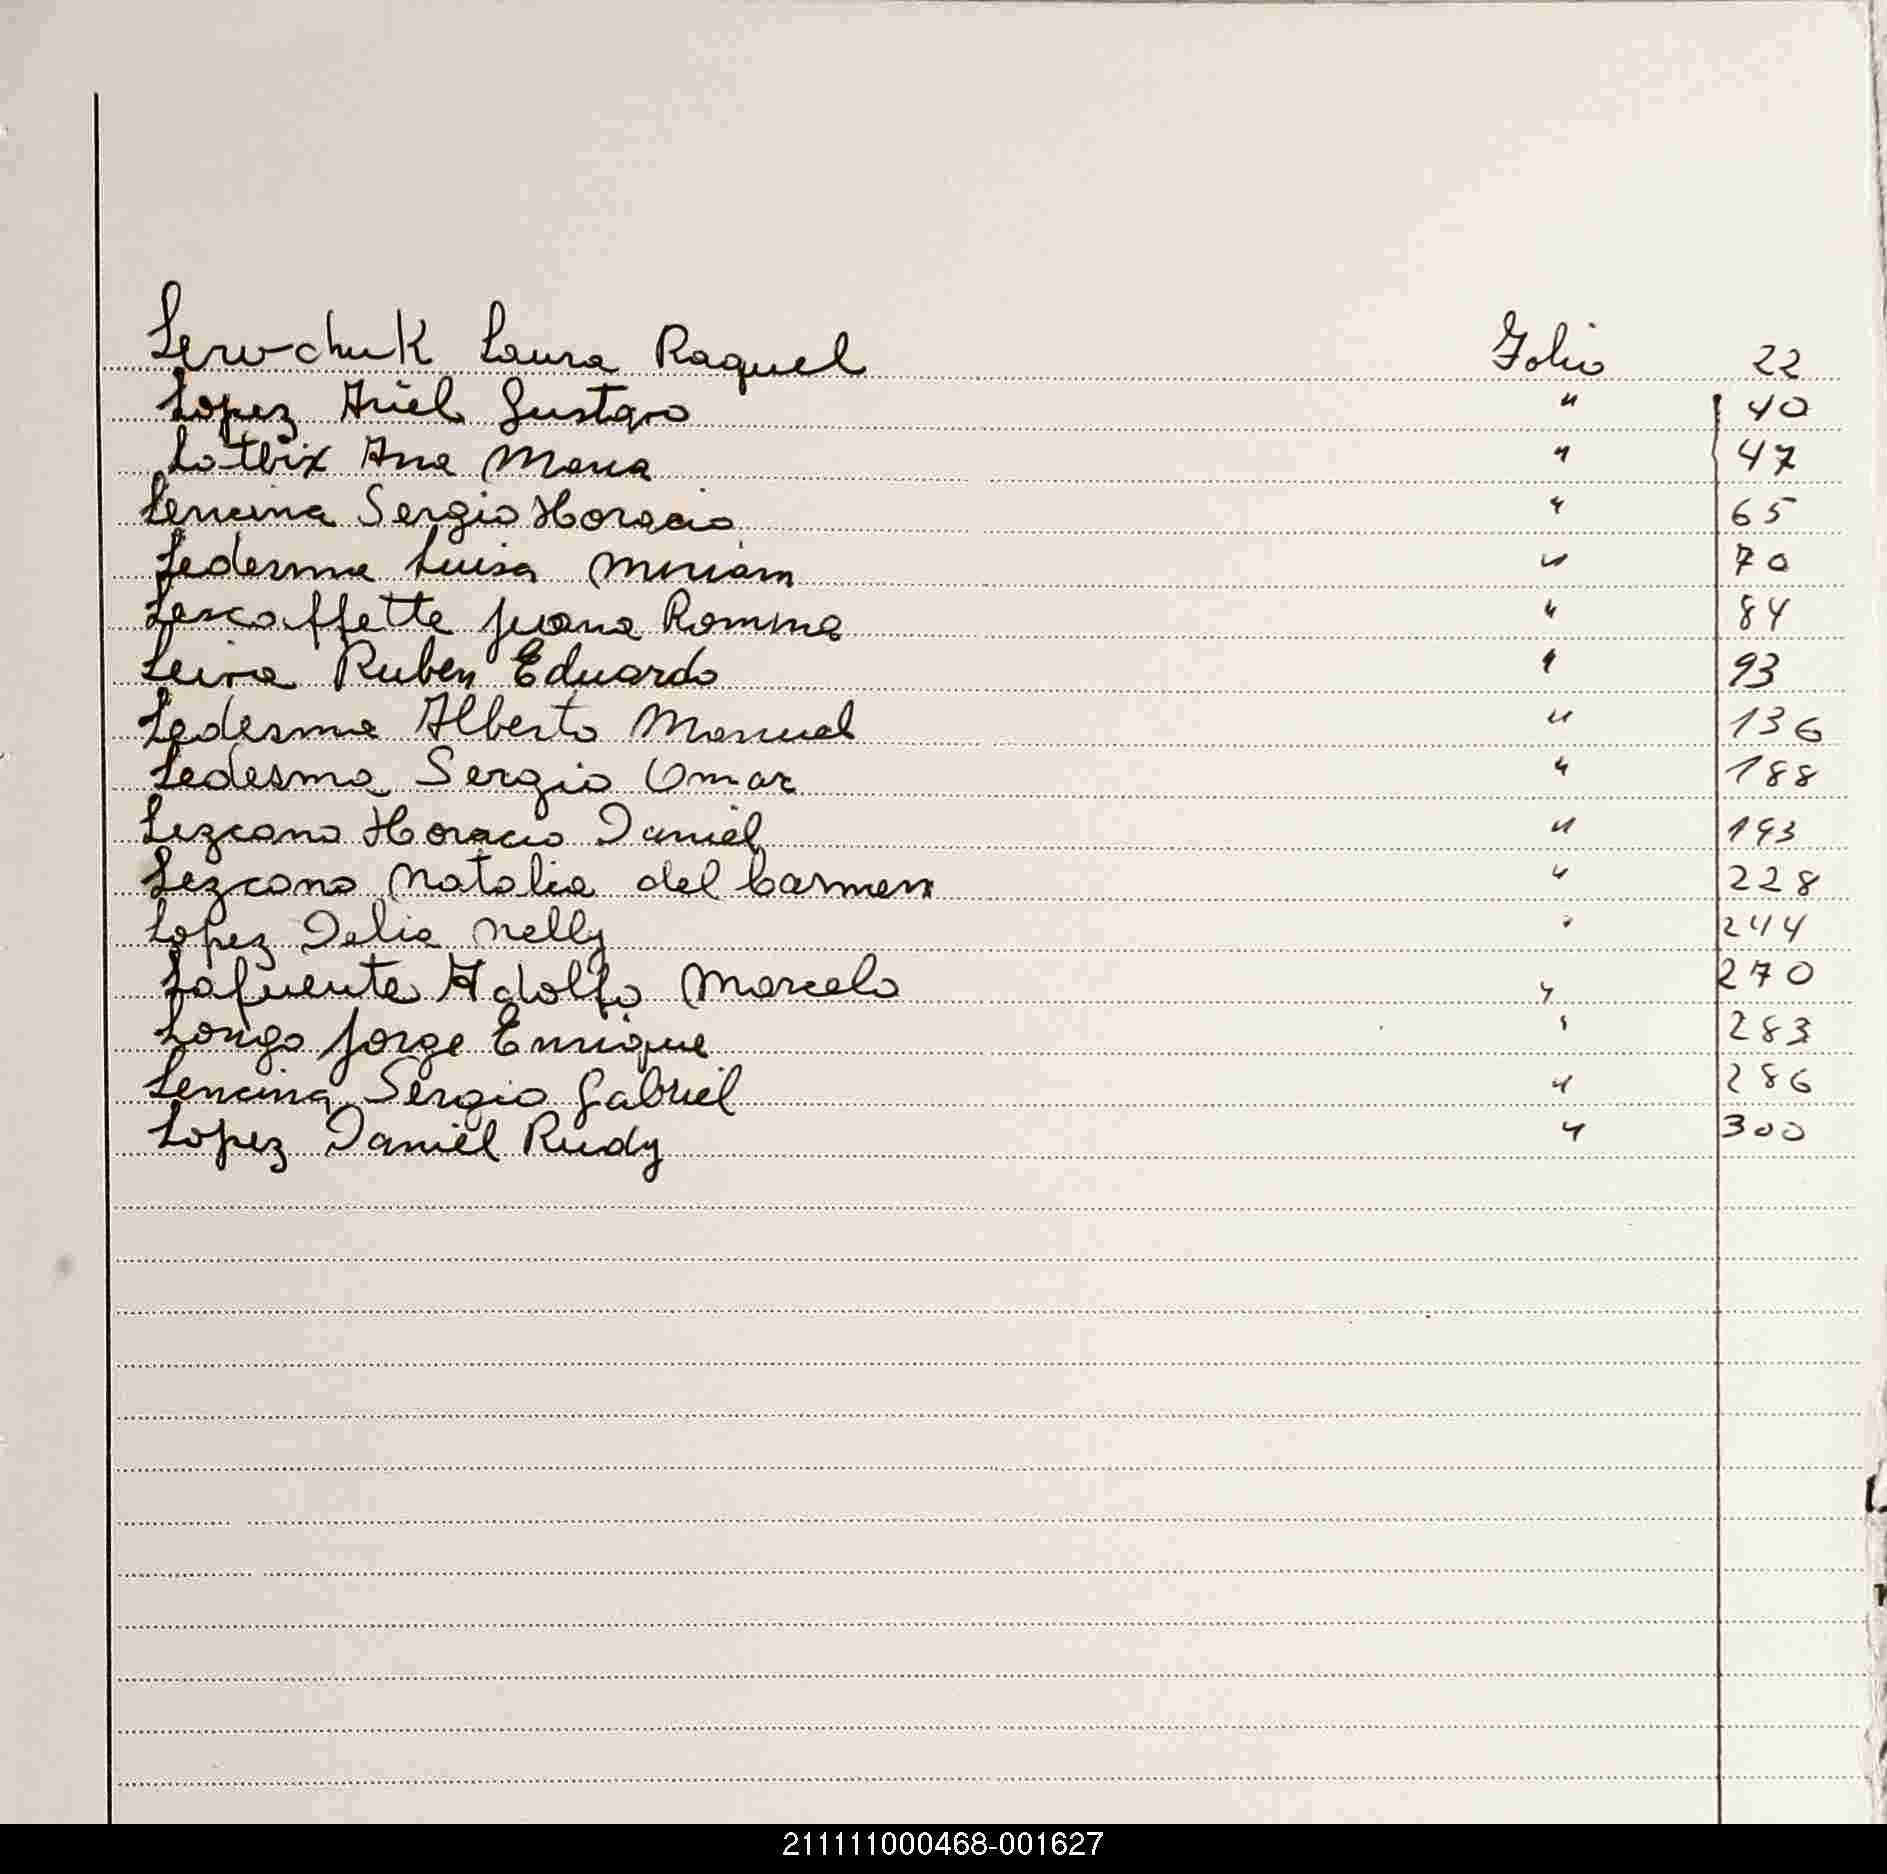 Lewchuk Laura Raquel Folio 22
Lopez Ariel Gustavo " 40
Ana Maria " 47
Lencina Sergio Horacio " 65
Ledesma Luisa Miriam " 70
Lescaffette Juana Romina " 84
Leiva Ruben Eduardo " 93
Ledesma Alberto Manuel " 136
Ledesma Sergio Omar " 188
Lezcano Horacio Daniel " 193
Lezcano Natalia del Carmen " 228
Lopez Delia Nelly " 244
Lafuente Adolfo Marcelo " 270
Longo Jorge Enrique " 283
Lencina Sergio Gabriel " 286
Lopez Daniel Rudy " 300
211111000468-001627